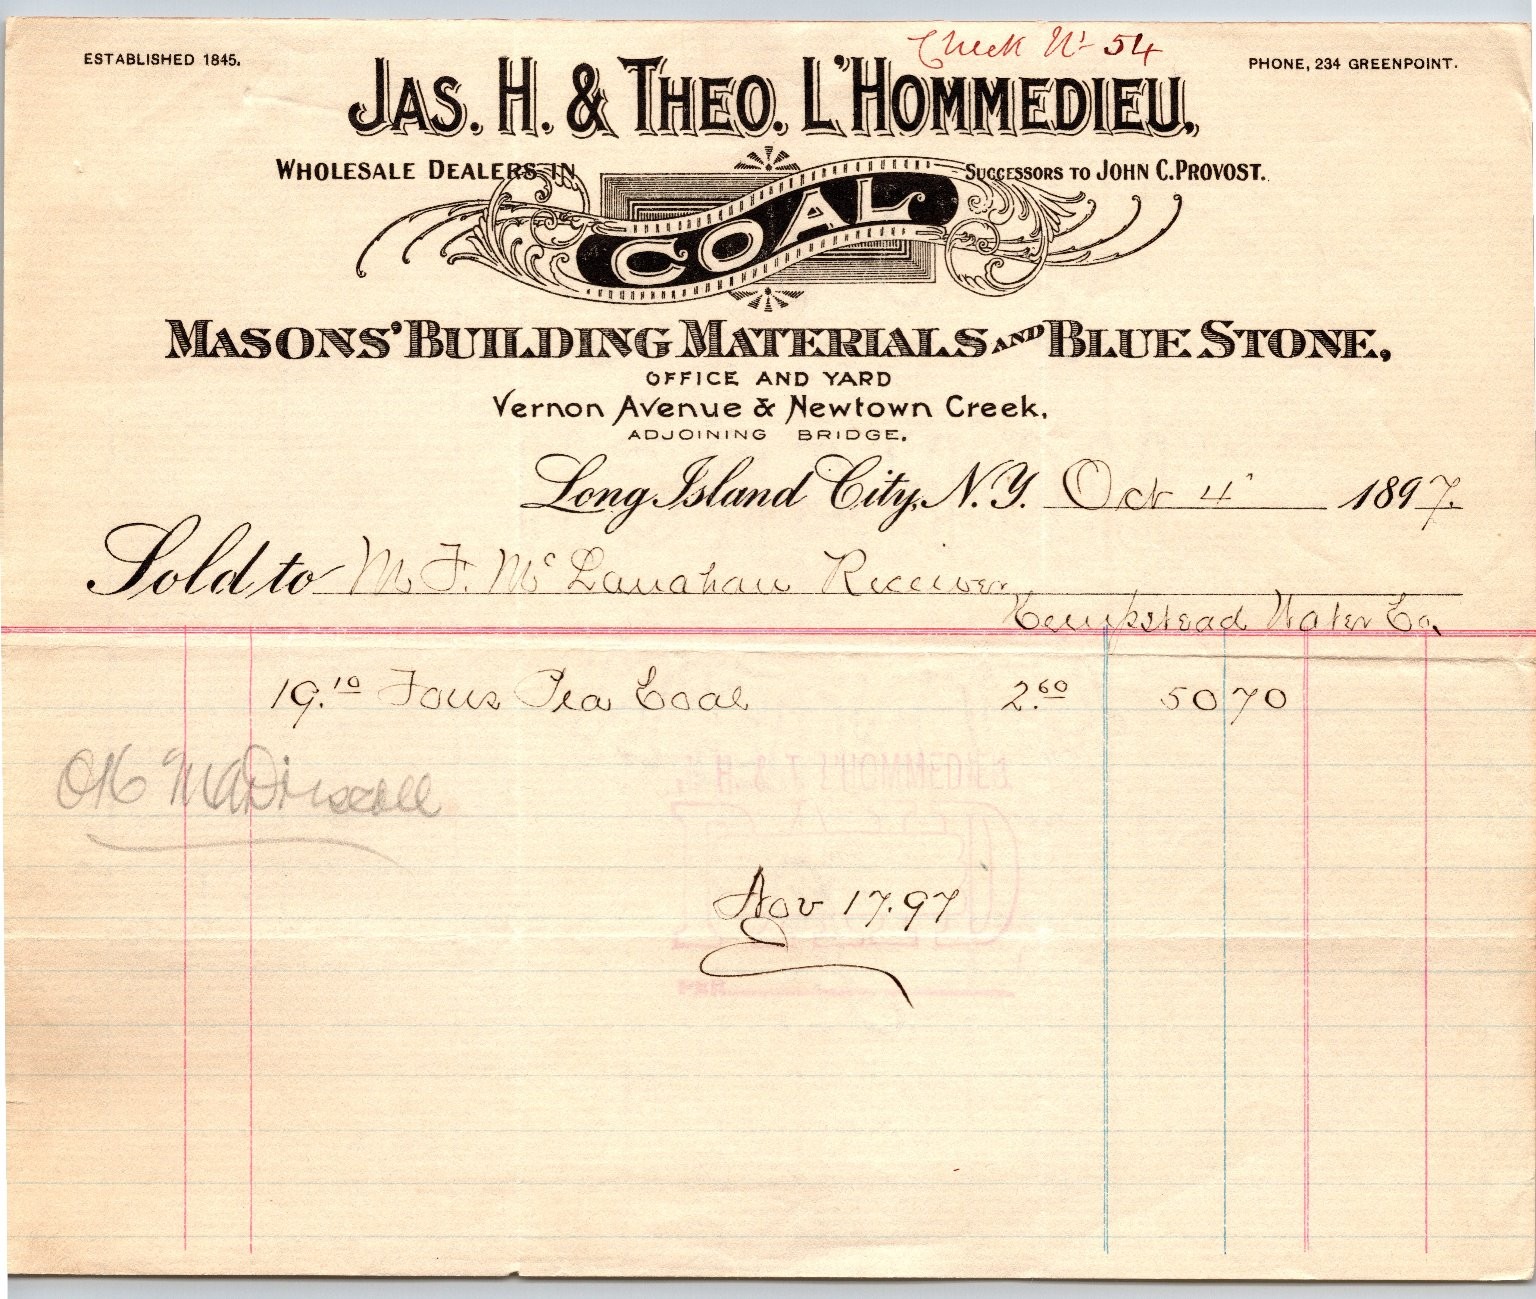 Check No 54
ESTABLISHED 1845.
PHONE, 234 GREENPOINT.
JAS. H. & THEO. L'HOMMEDIEU,
WHOLESALE DEALERS IN
SUCCESSORS TO JOHN C. PROVOST.
COAL
MASONS' BUILDING MATERIALS AND BLUE STONE,
OFFICE AND YARD
Vernon Avenue & Newtown Creek,
ADJOINING BRIDGE.
Long Island City, N.Y. Oct 4 1897.
Sold to M F. McLanahan Receiver
Hempstead Water Co.
19.10 Tons Pea Coal 2.60 50 70
OK Driscoll
Nov 17.97